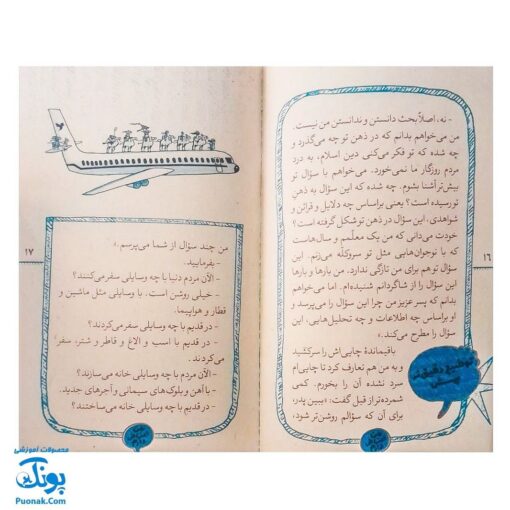 - نه، اصلاً بحث دانستن و ندانستن من نیست.
من می‌خواهم بدانم که در ذهن تو چه می‌گذرد و
چه شده که تو فکر می‌کنی دین اسلام، به درد
مردم روزگار ما نمی‌خورد. می‌خواهم با سؤال تو
بیش‌تر آشنا بشوم. چه شده که این سؤال به ذهن
تو رسیده است؟ یعنی براساس چه دلایل و قرائن و
شواهدی، این سؤال در ذهن تو شکل گرفته است؟
خودت می‌دانی که من یک معلّمم و سال‌هاست
که با نوجوان‌هایی مثل تو سروکلّه می‌زنم. این
سؤال تو هم برای من تازگی ندارد. من بارها و بارها
این سؤال را از شاگردانم شنیده‌ام. اما می‌خواهم
بدانم که پسر عزیز من چرا این سؤال را می‌پرسد و
او براساس چه اطلاعات و چه تحلیل‌هایی، این
سؤال را مطرح می‌کند.»
باقیماندهٔ چایی‌اش را سرکشید
و به من هم تعارف کرد تا چایی‌ام
سرد نشده آن را بخورم. کمی
شمرده‌تر از قبل گفت: «ببین پدر،
برای آن که سؤالم روشن‌تر شود،
توضیح دقیق‌تر
پرسش
۱۶
من چند سؤال از شما می‌پرسم.»
- بفرمایید.
- الآن مردم دنیا با چه وسایلی سفر می‌کنند؟
- خیلی روشن است، با وسایلی مثل ماشین و
قطار و هواپیما.
- در قدیم با چه وسایلی سفر می‌کردند؟
- در قدیم با اسب و الاغ و قاطر و شتر، سفر
می‌کردند.
- الآن مردم با چه وسایلی خانه می‌سازند؟
- با آهن و بلوک‌های سیمانی و آجرهای جدید.
- در قدیم با چه وسایلی خانه می‌ساختند؟
۱۷
محصولات آموزشی
پونک
Puonak.Com